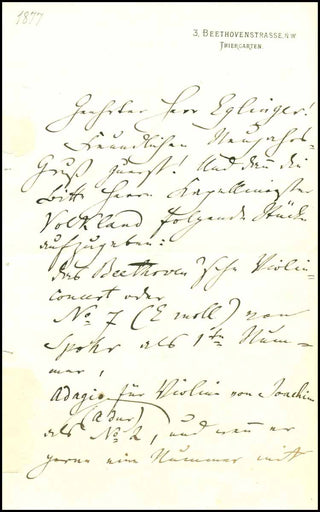 1877
3, BEETHOVENSTRASSE, N.W
THIERGARTEN.
Geehrter Herr Eglinger!
Freundlichen Neujahrs-
Gruß zuerst! Und dann die
Bitte Herrn Kapellmeister
Volkland folgende Stücke
aufzugeben:
das Beethoven'sche Violin-
concert oder
No 7 (E moll) von
Spohr als 1te Num-
mer,
Adagio für Violine von Joachim
(A dur)
als No 2, und wenn er
gerne eine Nummer mit